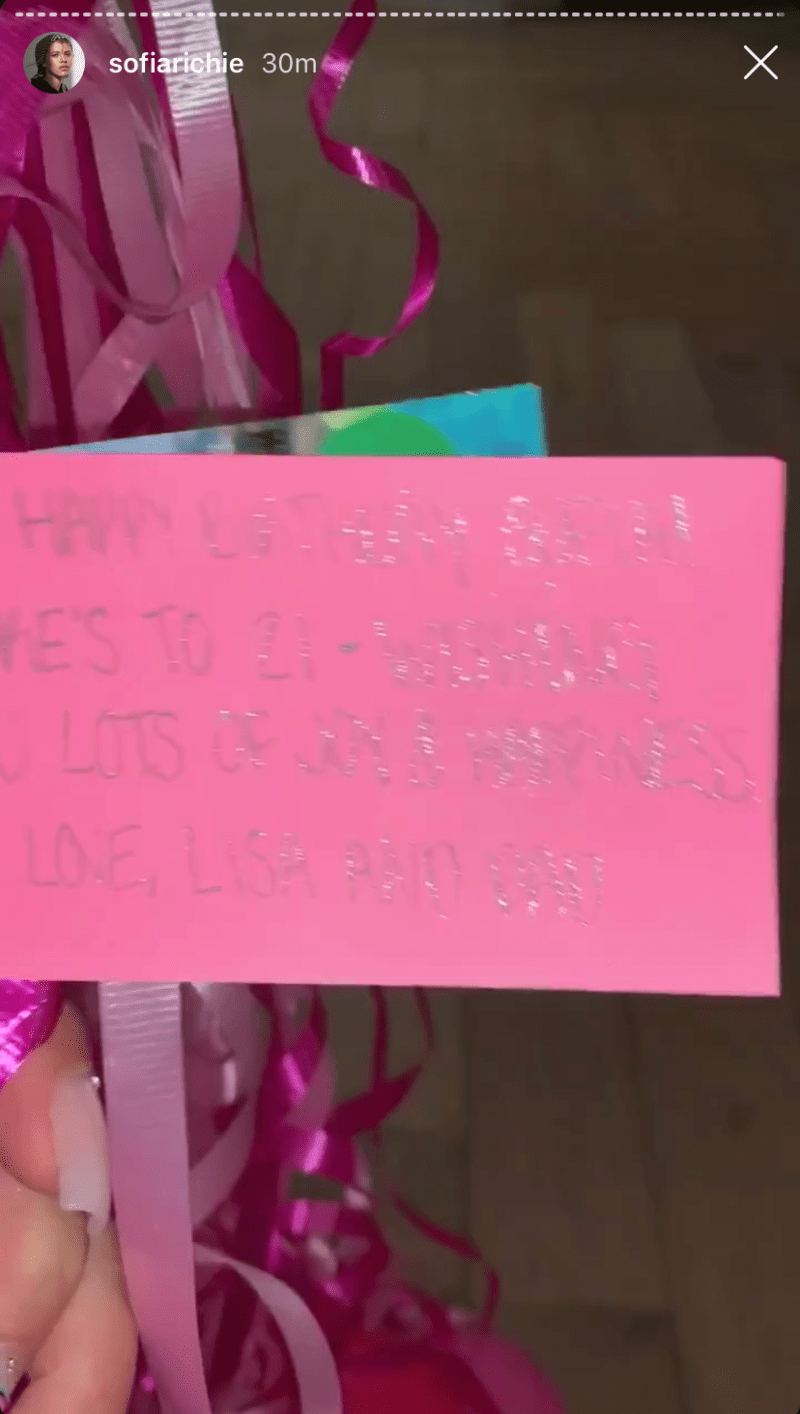 sofiarichie 30m
HAPPY BIRTHDAY SOFIA
HE'S TO 21 - WISHING
U LOTS OF JOY & HAPPINESS
LOVE, LISA AND